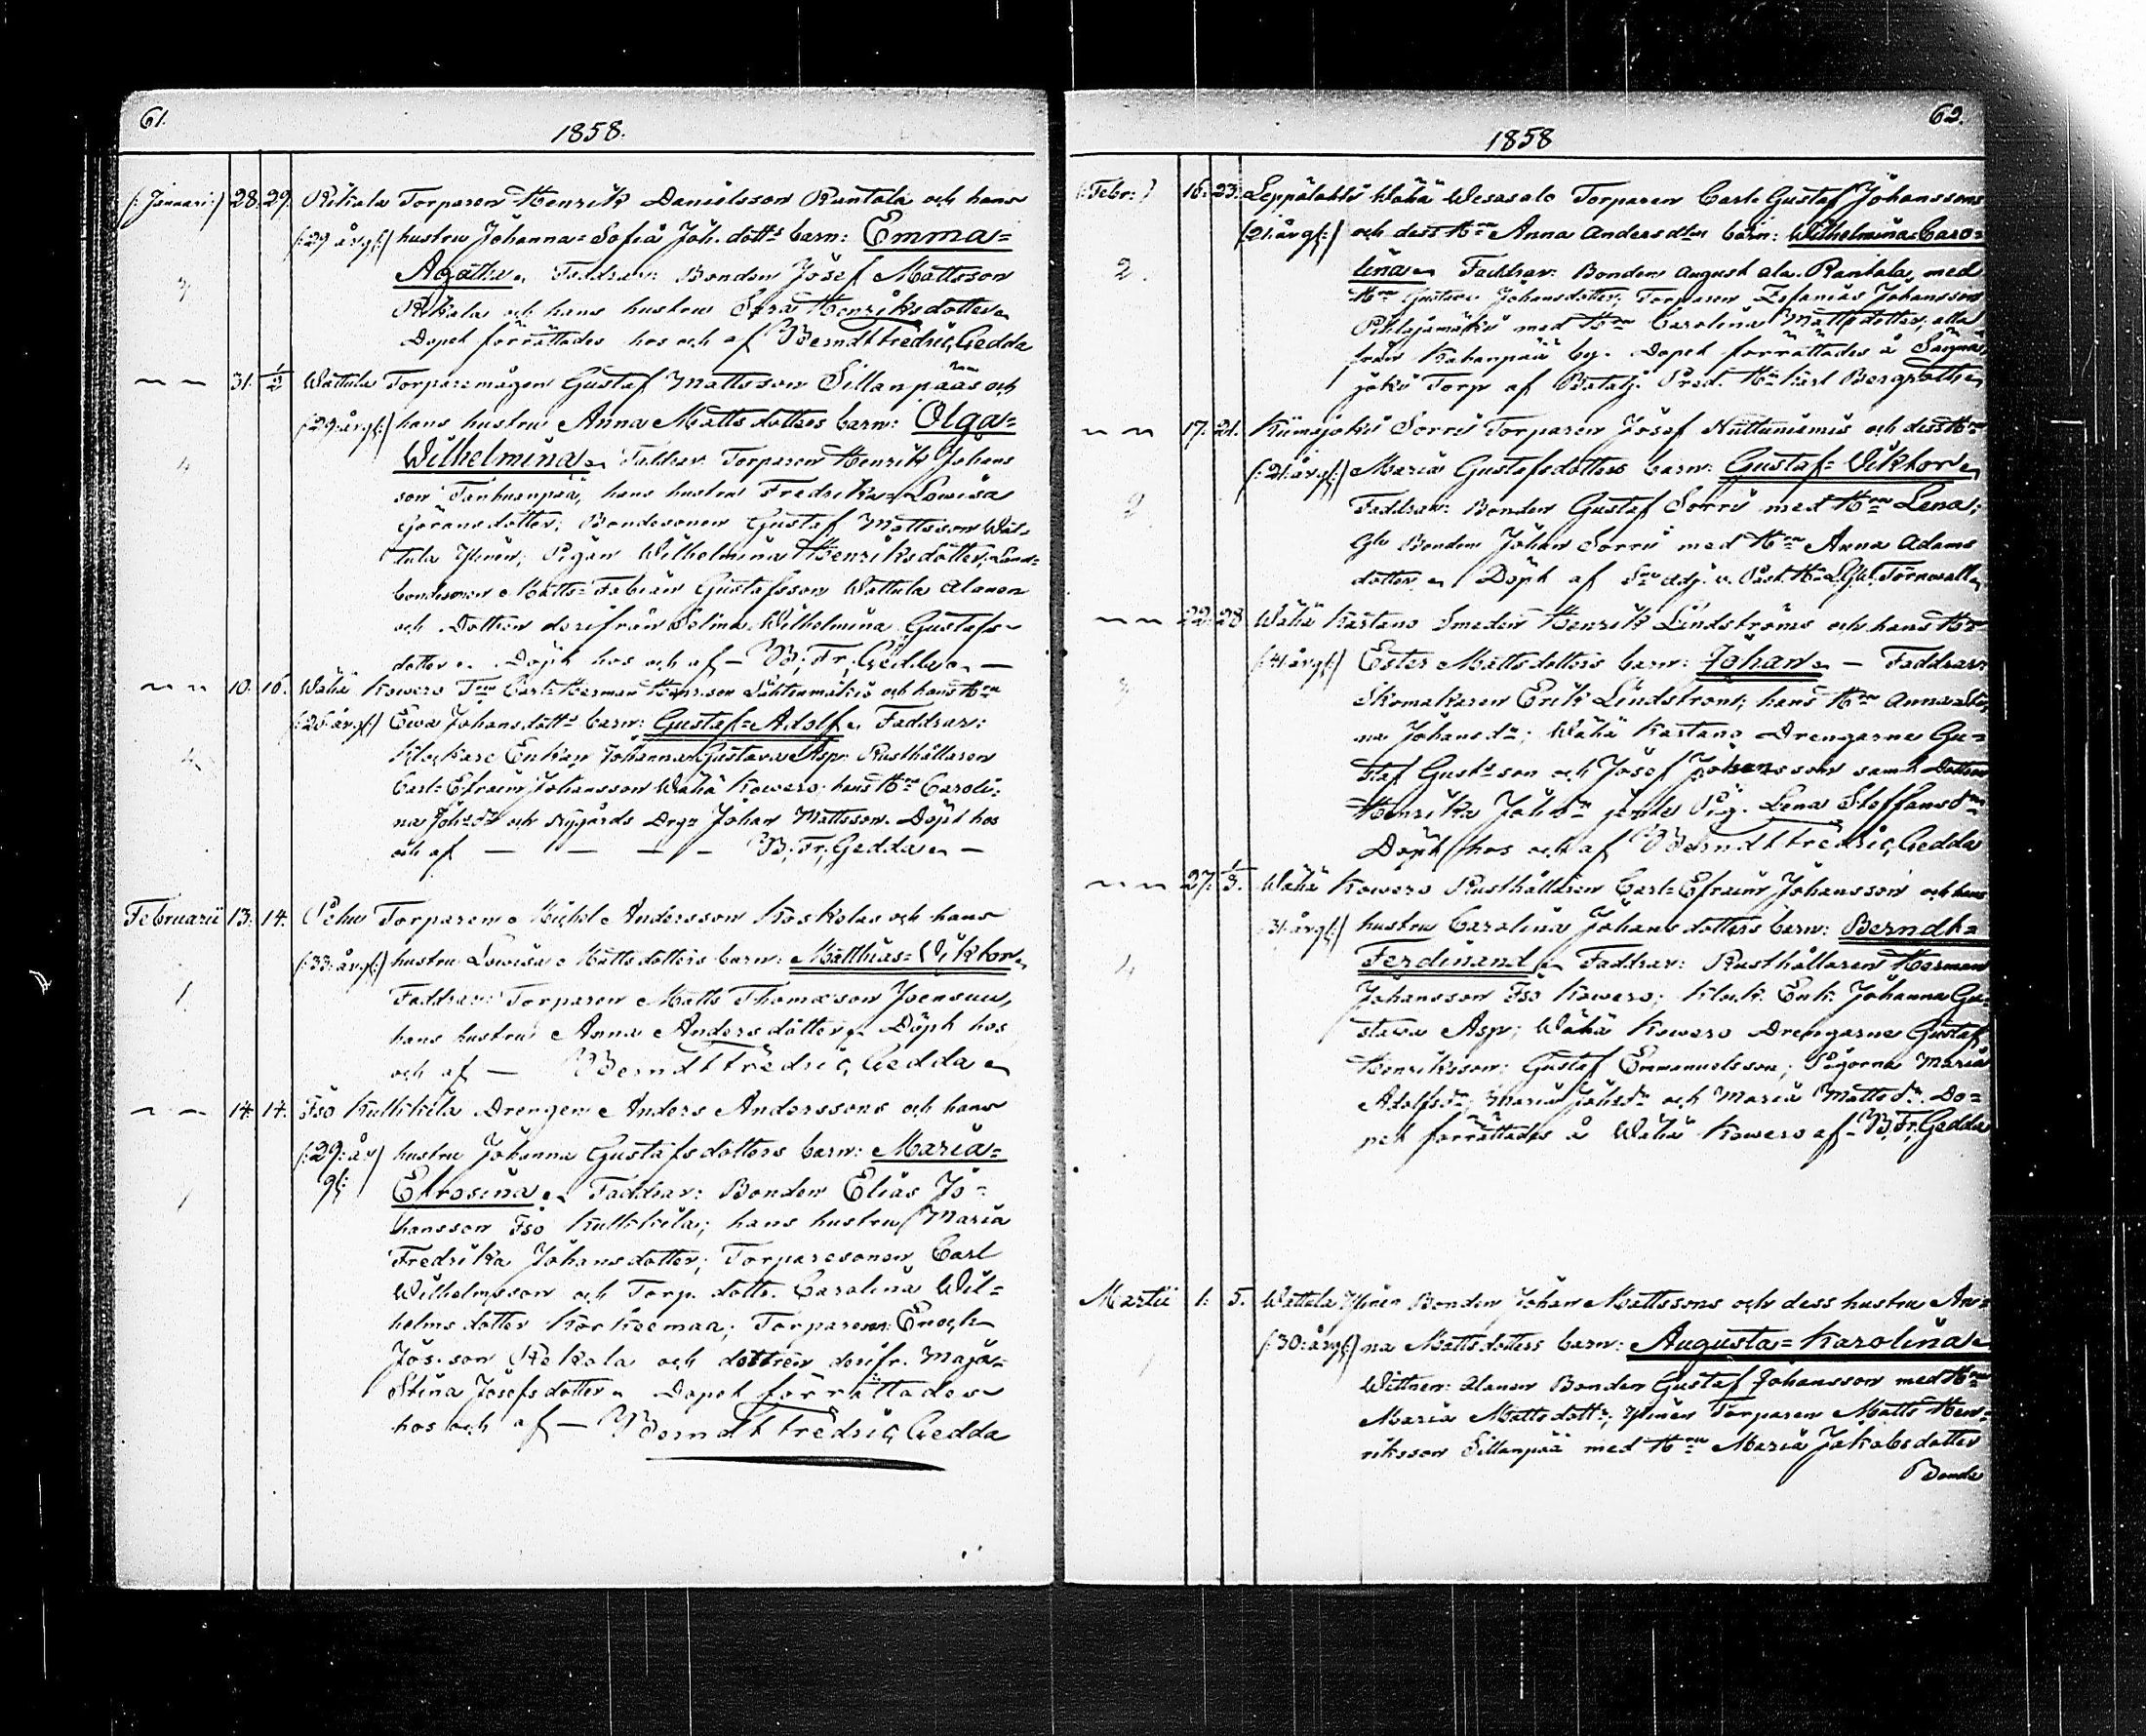 61.
1858.
(: Januari :) 28. 29. Rekala Torparen Henrik Danielsson Rantala och hans
(:29 årg:) hustru Johanna=Sofia Joh. dotts barn: Emma=
Agatha. Faddrar: Bonden Josef Mattsson
3
Rekala och hans hustru Henriksdotter.
Dopet förrättades hos och af Berndt Fredric Gedda
~ ~ 31. 1/2 Wattula Torparemågen Gustaf Mattsson Sillanpääs och
(:29 årg:) hans hustrus Anna Mattsdotters barn: Olga=
4
Wilhelmina. Faddrar: Torparen Henrik Johans
son Tanhuanpää, hans hustru Fredrika Lowisa
Göransdotter; Bondesonen Gustaf Mattsson Wat-
tula Ylinen; Pigan Wilhelmina Henriksdotter; Land-
bondesonen Matts=Fabian Gustafsson Wattula Alanen
och Dottren derifrån Selma=Wilhelmina Gustafs-
dotter. Döpt hos och af — B: Fr: Gedda. —
~ ~ 10. 16. Wähä Kowero Carl Herman och hans Hru
(:26 årg:) Ewa Johansdotts barn: Gustaf=Adolf. Faddrar:
4
Klockare Enkan Johanna Gustava Asp. Rusthållaren
Carl=Efraim Johansson Wähä Kowero; hans Hru Caroli=
na och Drgn Johan Mattsson. Döpt hos
och af — — — — B: Fr: Gedda. —
Februarii 13. 14. Pehu Torparen Michel Andersson Koskelas och hans
(:33 årg:) hustru Lowisa Mattsdotters barn: Matthias=Wiktor.
1
Faddrar: Torparen Matts Thomasson Joensuu,
hans hustru Anna Andersdotter. Döpt hos
och af — Berndt Fredric Gedda.
~ ~ 14. 14. Iso Kulkkila Drengen Anders Anderssons och hans
(:29: år hustru Johanna Gustafsdotters barn: Maria=
g:)
Efrosina. Faddrar: Bonden Elias Jo=
1
hansson Iso Kulkkila; hans hustru Maria
Fredrika Johansdotter; Torparesonen Carl
Wilhelmsson och Torp. dottr. Carolina Wil=
helmsdotter Korkeemaa; Torparen Enoch
Jos.son Rekola och dottren derifr. Maja=
Stina Josefsdotter. Dopet förrättades
hos och af — Berndt Fredric Gedda
62.
1858
(:Febr:) 16. 23. Leppälahti Wähä Wesasalo Torparen Carl Gustaf Johanssons
(:21. årg:) och dess Hru Anna Andersdtrs barn: Wilhelmina=Caro=
2.
lina. Faddrar: Bonden August ala-Rantala, med
Hru Gustava Johansdotter; Torparen Zefanias Johansson
Pihlajamäki med Hru Carolina Mattsdotter, alla
från Kahanpää by. Dopet förrättades å
joki Torp af Batalj. Pred. Hr Karl Bergroth.
~ ~ 17. 21. Kiimajoki Sorri Torparen Josef och dess Hru
(:21. årg:) Maria Gustafsdotters barn: Gustaf=Viktor.
2
Faddrar: Bonden Gustaf Sorri med Hru Lena;
Bonden Johan Sorri med Hru Anna Adams
dotter. Döpt af Adj. v. Past. Törnwall.
~ ~ 22. 28 Wähä Kartano Smeden Henrik Lindströms och hans Hru
(:41 årg:) Ester Mattsdotters barn: Johan. — Faddrar:
3
Skomakaren Erik Lindström; hans Hru Anna=Sti-
na Johansdr; Wähä Kartano Drengarne Gu=
staf Gustsson och Josef Johansson samt Dottren
Henrika Johdr jemte Pig. Lena Stoffansdr
Döpt hos och af Berndt Fredric Gedda
~ ~ 27. 1/3. Wähä Kowero Rusthållaren Carl=Efraim Johansson och hans
(:31. årg:) hustru Carolina Johansdotters barn: Berndt=
4
Ferdinand. Faddrar: Rusthållaren Herman
Johansson Iso Kowero; Klock. Enk. Johanna Gu=
stava Asp; Wähä Kowero Drengarne Gustaf
Henriksson; Gustaf Emmanuelsson; Pigorna Maria
Adolfsdr; Maria Johsdr och Maria Mattsdr. Do=
pet förrättades å Wähä Kowero af — B. Fr. Gedda
Martii 1. 5. Wattula Ylinen Bonden Johan Mattssons och dess hustru An=
(:30: årg:) na Mattsdotters barn: Augusta=Karolina.
1
Wittnen: Alanen Bonden Gustaf Johansson med Hru
Maria Mattsdottr; Ylinen Torparen Matts Hen=
riksson Sillanpää med Hru Maria Jakobsdotter
Bonde